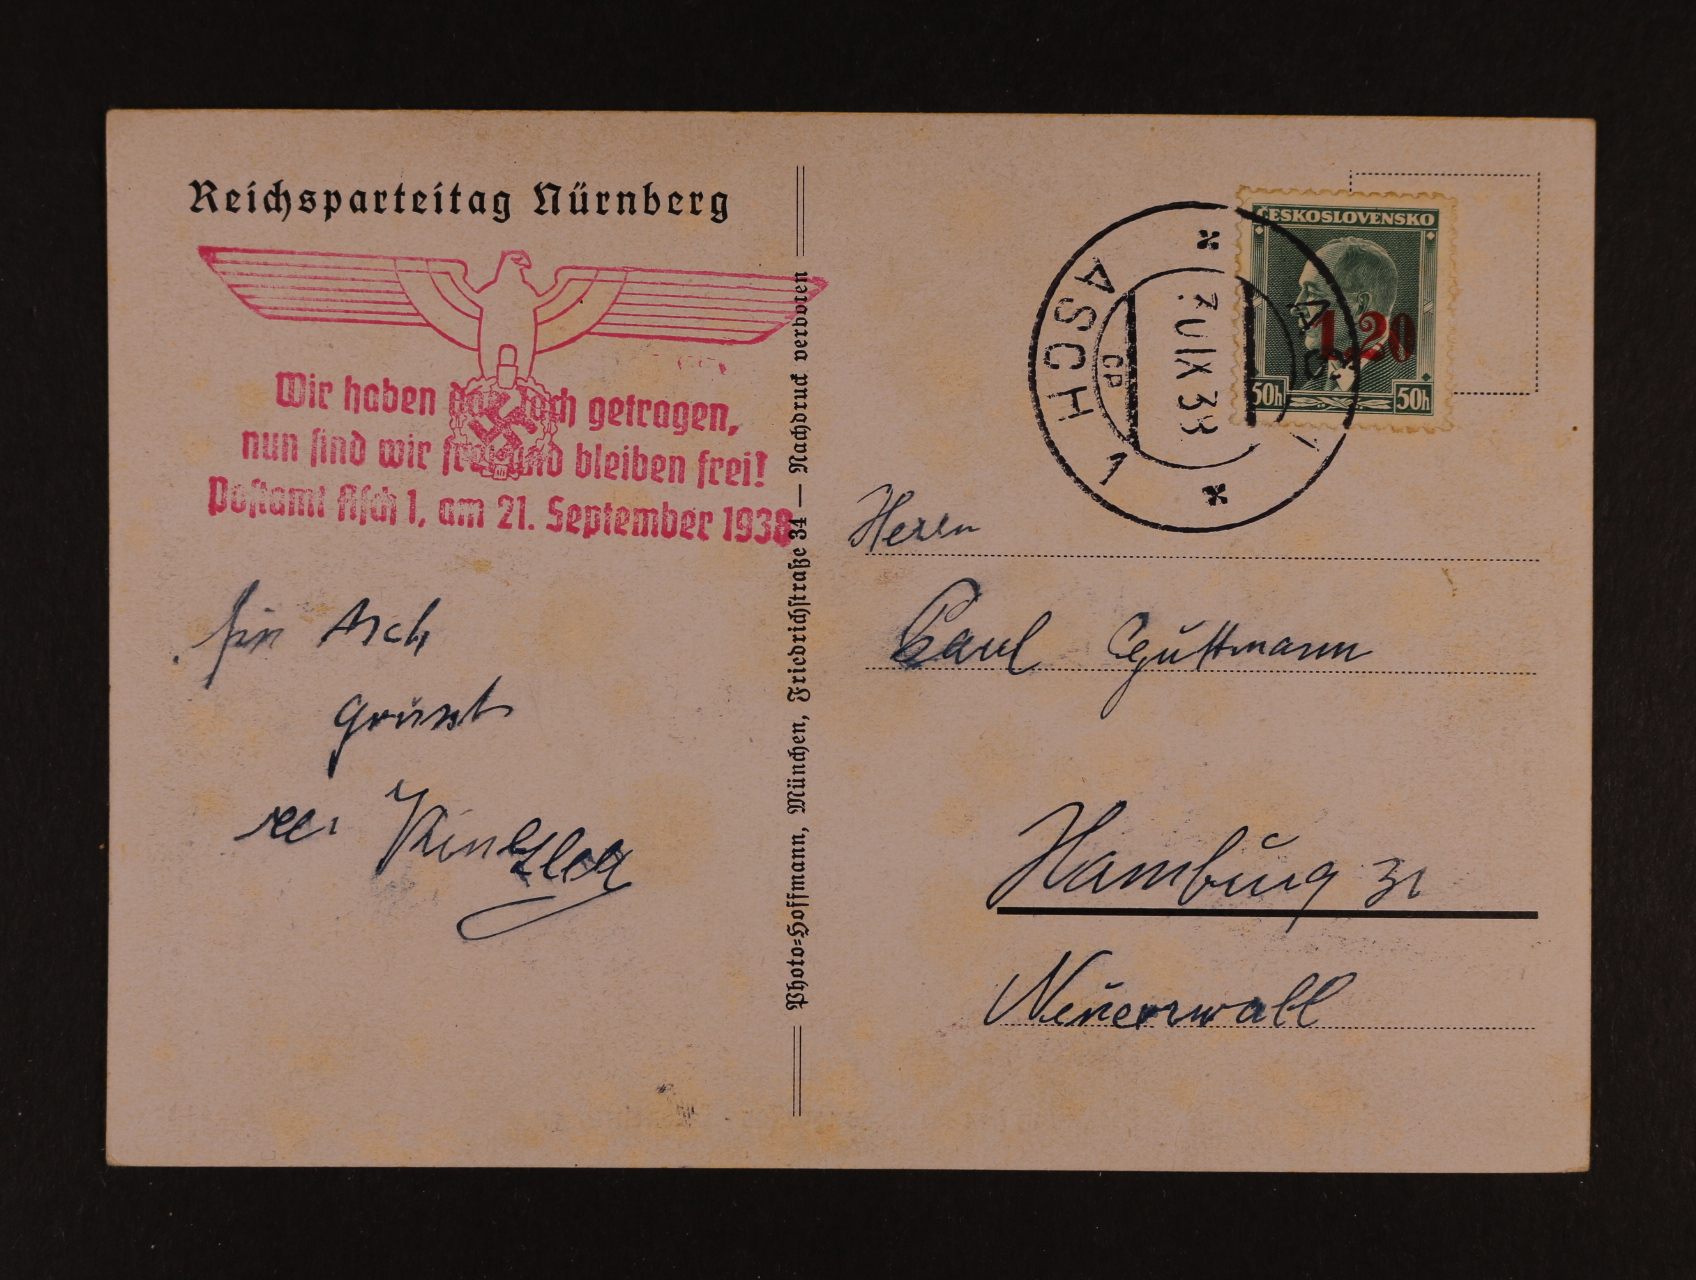 Reichsparteitag Nürnberg
Wir haben das Joch getragen,
nun sind wir frei und bleiben frei!
Postamt Asch 1, am 21. September 1938
Asch
grüsst
Photo=Hoffmann, München, Friedrichstraße 34 — Nachdruck verboten
ASCH 1
IX 38
ČESKOSLOVENSKO
1.20
50h 50h
Herrn
Paul Guttmann
Hamburg
Neuerwall